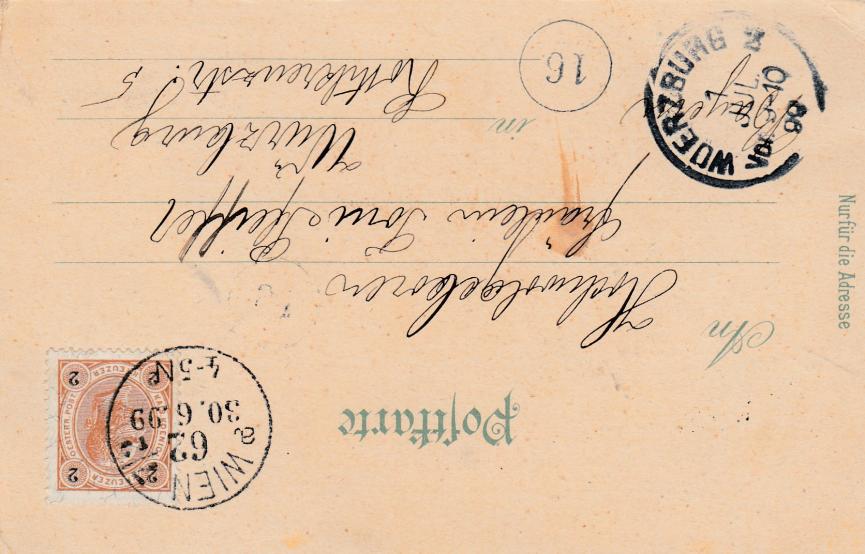 Postkarte
An
Hochwolgeboren
Fräulein Toni
in Würzburg
Bayern
5
Nur für die Adresse
WIEN
62
30. 6. 99
4-5N
a
OESTERR. POST
2
2
2
2
WOERZBURG 2
1
JUL
Vor 9-10
99
16